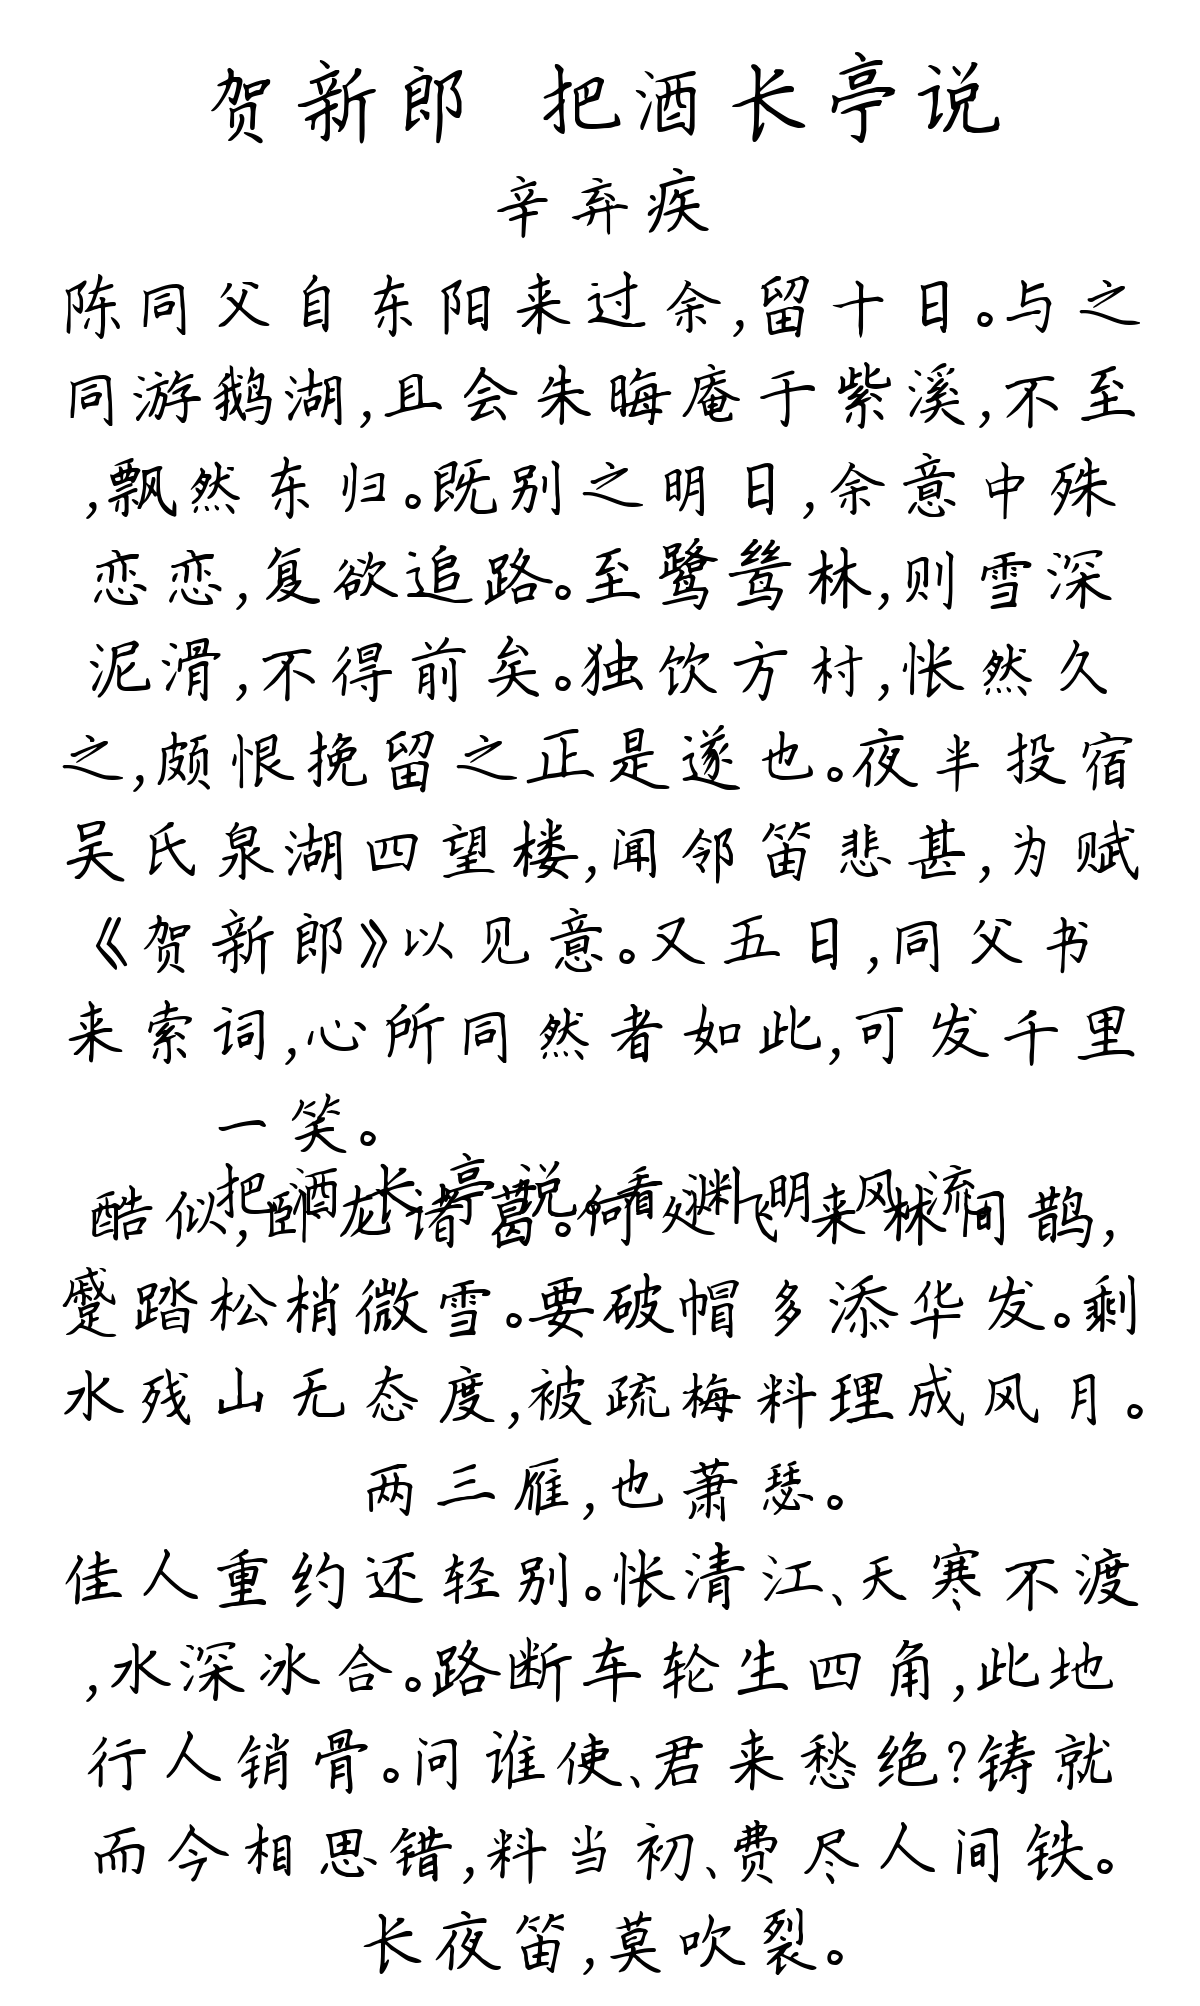 贺新郎 把酒长亭说
辛弃疾
陈同父自东阳来过余,留十日。与之
同游鹅湖,且会朱晦庵于紫溪,不至
,飘然东归。既别之明日,余意中殊
恋恋,复欲追路。至鹭鸶林,则雪深
泥滑,不得前矣。独饮方村,怅然久
之,颇恨挽留之正是遂也。夜半投宿
吴氏泉湖四望楼,闻邻笛悲甚,为赋
《贺新郎》以见意。又五日,同父书
来索词,心所同然者如此,可发千里
一笑。
把酒长亭说。看渊明风流
酷似,卧龙诸葛。何处飞来林间鹊,
蹙踏松梢微雪。要破帽多添华发。剩
水残山无态度,被疏梅料理成风月。
两三雁,也萧瑟。
佳人重约还轻别。怅清江、天寒不渡
,水深冰合。路断车轮生四角,此地
行人销骨。问谁使、君来愁绝?铸就
而今相思错,料当初、费尽人间铁。
长夜笛,莫吹裂。